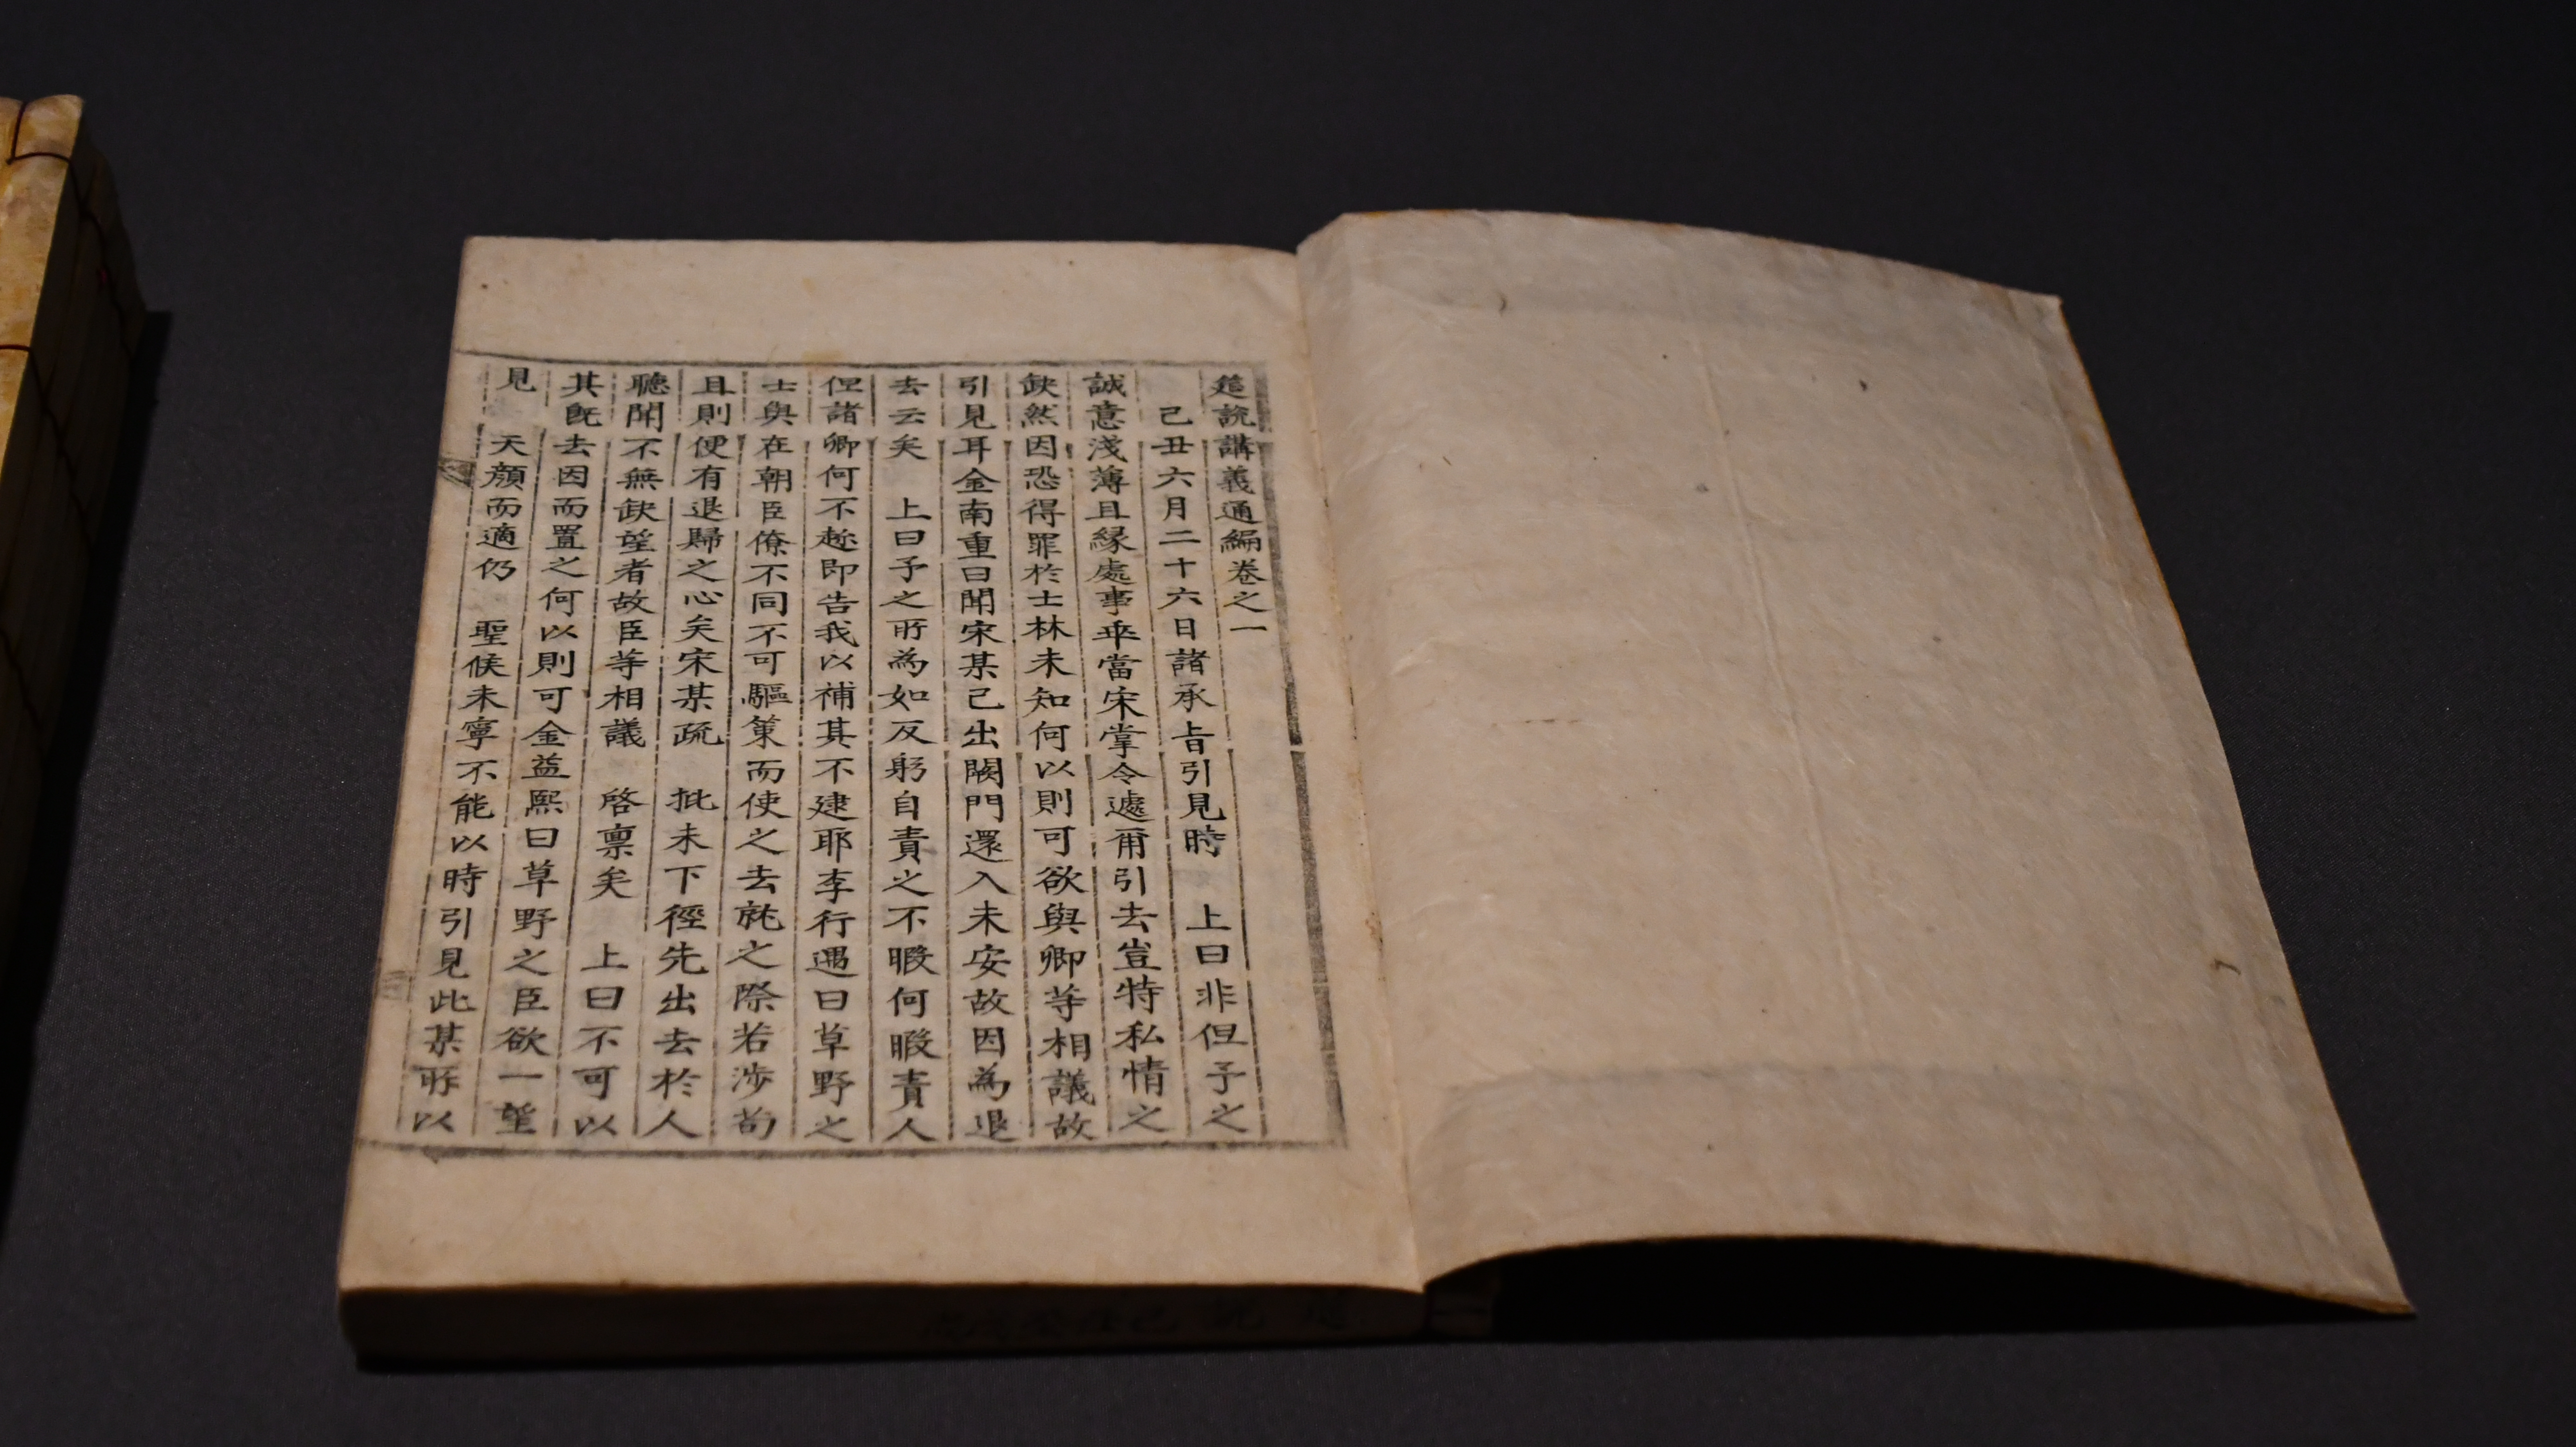 筵說講義通編卷之一
己丑六月二十六日諸承旨引見時 上曰非但予之
誠意淺薄且緣處事乖當宋掌令遽爾引去豈特私情之
缺然因恐得罪於士林未知何以則可欲與卿等相議故
引見耳金南重曰聞宋某已出闕門還入未安故因爲退
去云矣 上曰予之所爲如反躬自責之不暇何暇責人
但諸卿何不趂即告我以補其不逮耶李行遇曰草野之
士與在朝臣僚不同不可驅策而使之去就之際若涉苟
且則便有退歸之心矣宋某疏 批未下徑先出去於人
聽聞不無缺望者故臣等相議 啓稟矣 上曰不可以
其旣去因而置之何以則可金益熙曰草野之臣欲一望
見 天顔而適仍 聖候未寧不能以時引見此某所以